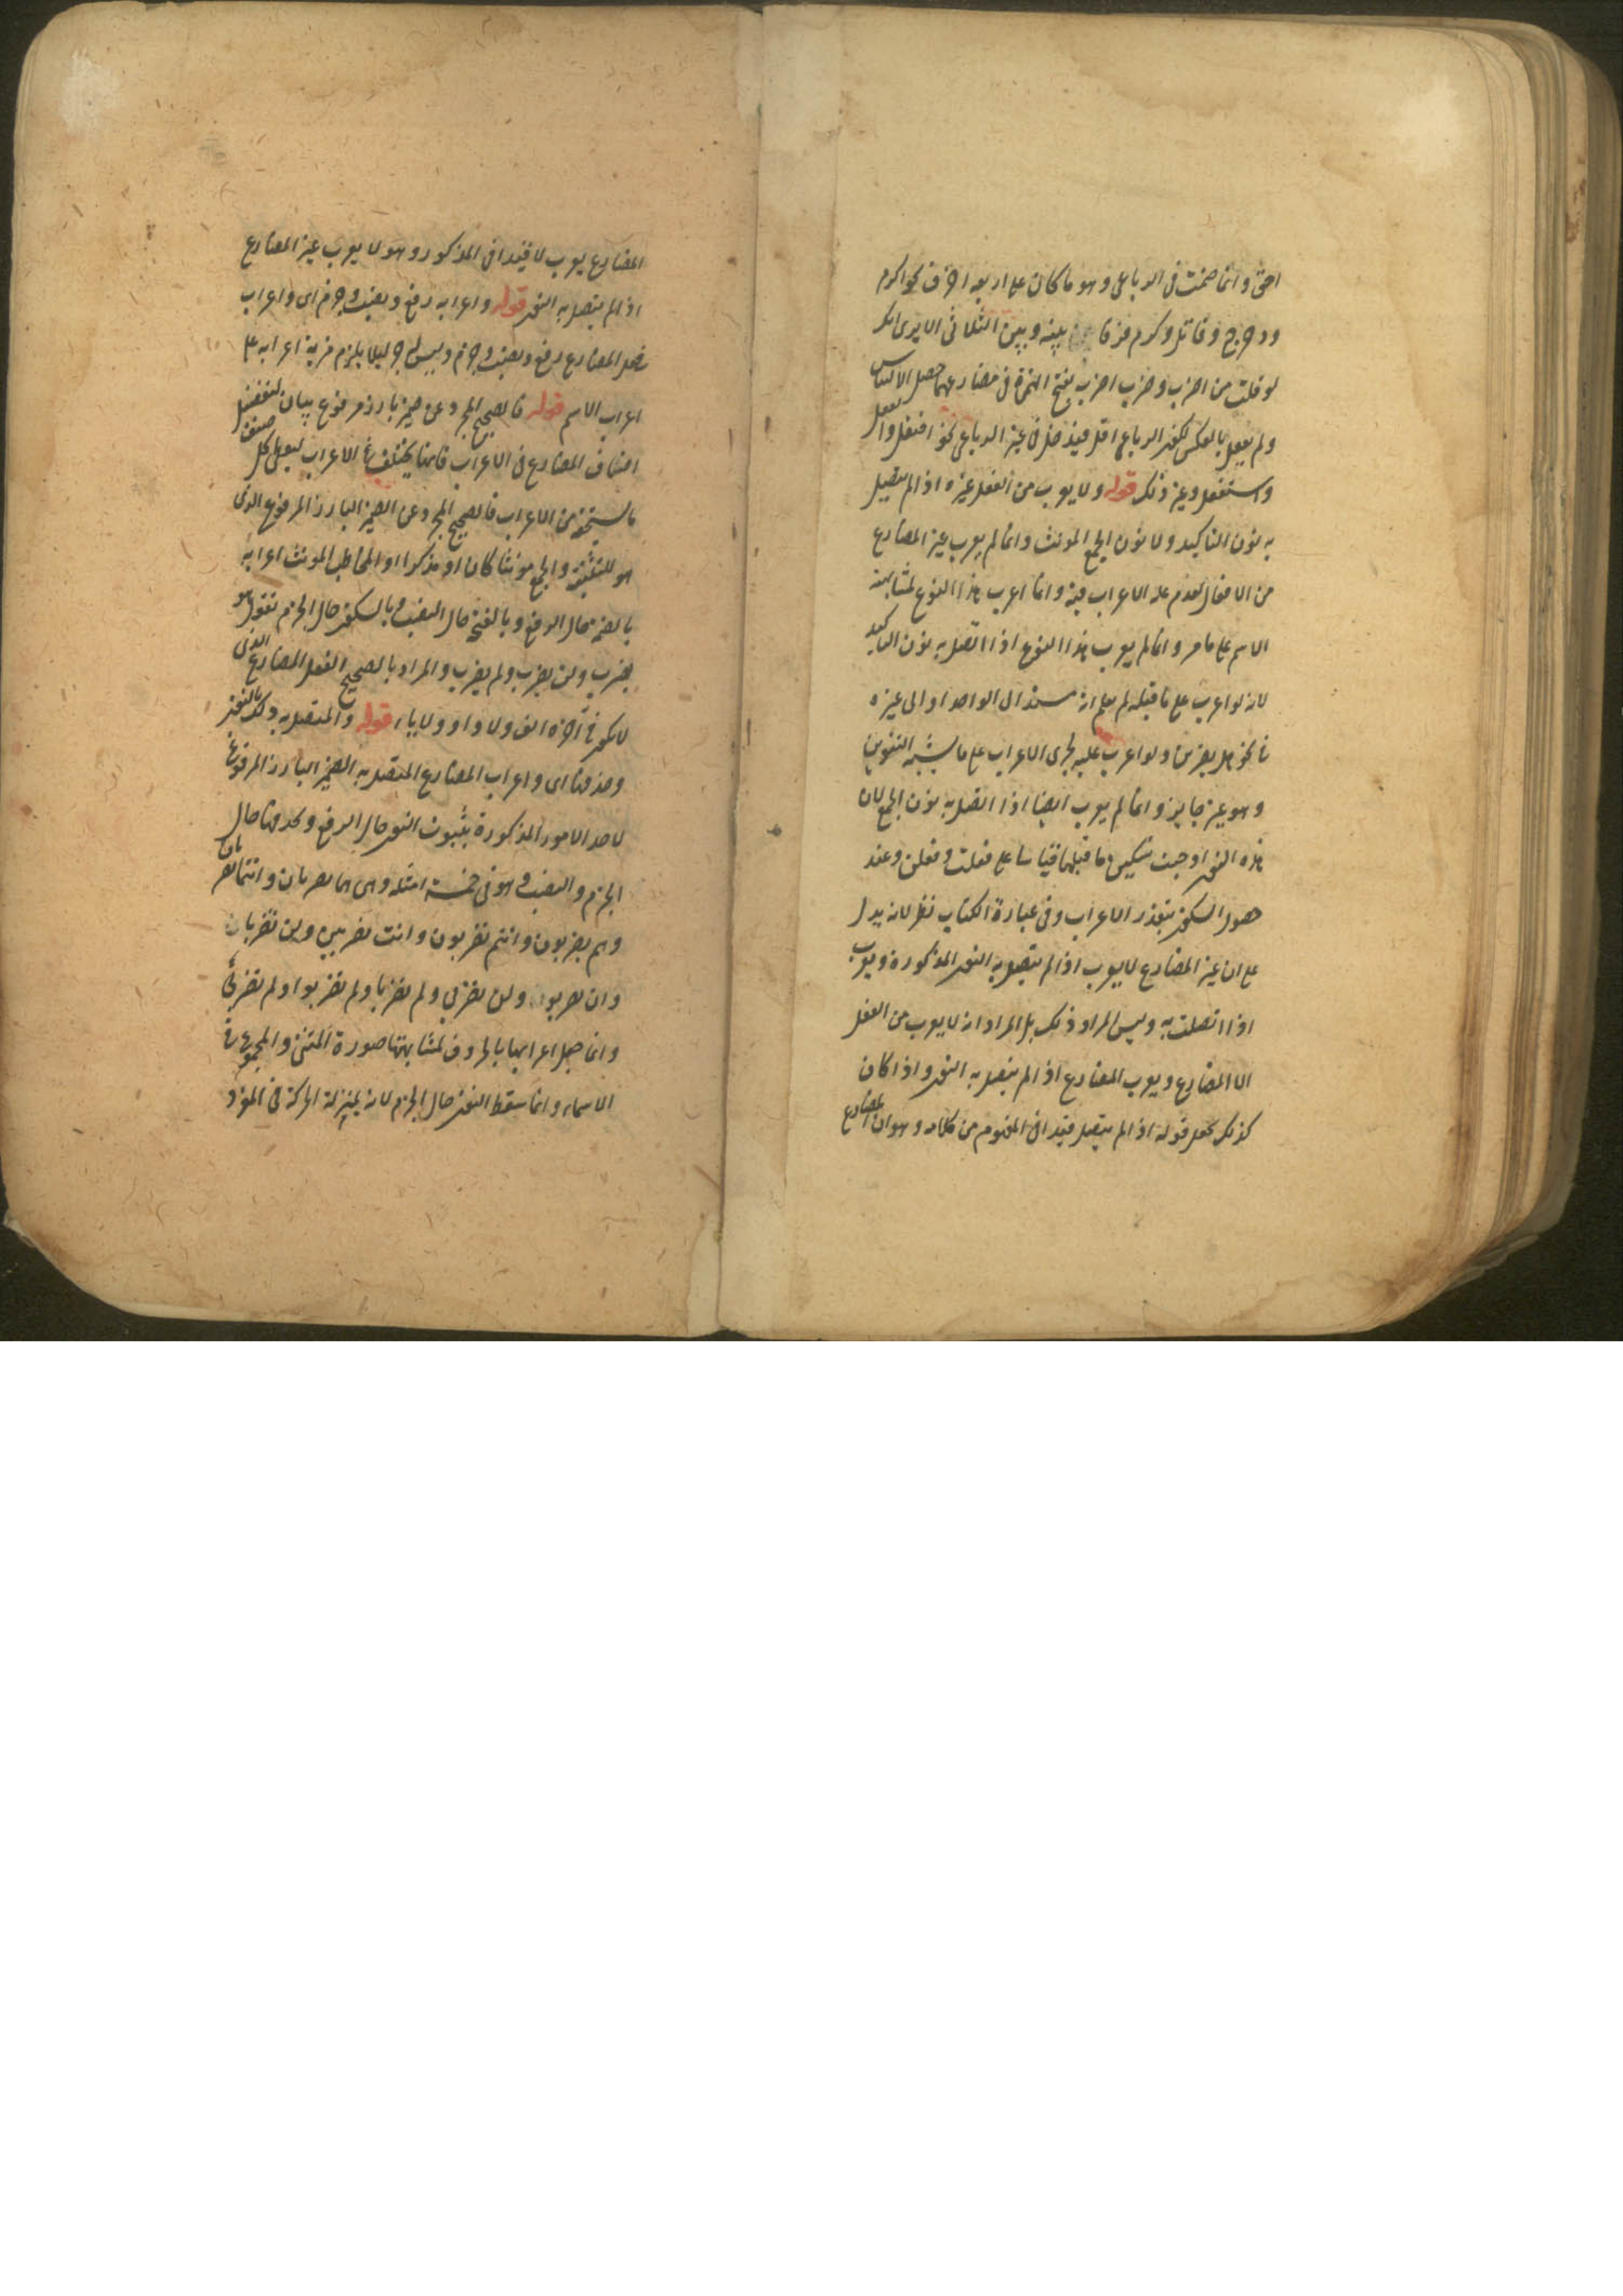 اخق وانما ضمت فى الرباعى وهو ما كان على اربعة احرف نحو اكرم
ودحرج وقاتل وكرم فرقا بينه وبين الثلاثى الا يرى انك
لو قلت من اضرب وضرب اضرب بفتح الهمزة فى مضارعهما حصل الالتباس
ولم يفعل بالعكس لكون الرباعى اقل فيدخل فى غير الرباعى نحو افتعل وانفعل
واستفعل وغير ذلك قوله ولا يعرب من الفعل غيره اذا لم يتصل
به نون التاكيد ولا نون الجمع المونث وانما لم يعرب غير المضارع
من الافعال لعدم علة الاعراب فيه وانما اعرب هذا النوع لمشابهته
الاسم على ما مر وانما لم يعرب هذا النوع اذا اتصل به نون التاكيد
لانه لو اعرب على ما قبله لم يعلم انه مسند الى الواحد او الى غيره
فى نحو هل يضربن ولو اعرب عليه لجرى الاعراب على ما يشبه التنوين
وهو غير جايز وانما لم يعرب ايضا اذا اتصل به نون الجمع لان
هذه النون اوجبت تسكين ما قبلها قياسا على فعلت وفعلن وعند
حصول السكون يتعذر الاعراب وفى عبارة الكتاب نظر لانه يدل
على ان غير المضارع لا يعرب اذا لم يتصل به النون المذكورة ويعرب
اذا اتصلت به وليس المراد ذلك بل المراد انه لا يعرب من الفعل
الا المضارع ويعرب المضارع اذا لم يتصل به النون واذا كان
كذلك يجعل قوله اذا لم يتصل قيدا فى المفهوم من كلامه وهو ان المضارع
المضارع يعرب لا قيدا فى المذكور وهو لا يعرب غير المضارع
اذا لم يتصل به النون قوله واعرابه رفع ونصب وجزم اى واعراب
فعل المضارع رفع ونصب وجزم وليس له جر ليلا يلزم مزية اعرابه على
اعراب الاسم قوله فالصحيح المجرد عن ضمير بارز مرفوع بيان لتفصيل
اصناف المضارع فى الاعراب فانها يختلف فى الاعراب ليعطى كل صنف
ما يستحقه من الاعراب فالصحيح المجرد عن الضمير البارز المرفوع الذى
هو للتثنية والجمع مونثا كان او مذكرا او المخاطب المونث اعرابه
بالضمة حال الرفع وبالفتحة حال النصب وبالسكون حال الجزم تقول هو
يضرب ولن يضرب ولم يضرب والمراد بالصحيح الفعل المضارع الذى
لا يكون فى آخره الف ولا واو ولا ياء قوله والمتصل به ذلك بالنون
وحذفها اى واعراب المضارع المتصل به الضمير البارز المرفوع
لاحد الامور المذكورة بثبوت النون حال الرفع وحذفها حال
الجزم والنصب وهو فى خمسة امثلة وهى هما يضربان وانتما تضربان
وهم يضربون وانتم تضربون وانت تضربين ولن تضربان
وان تضربوا ولن تضربى ولم تضربا ولم تضربوا ولم تضربى
وانما جعل اعرابها بالحروف لمشابهتها صورة المثنى والمجموع فى
الاسماء وانما سقط النون حال الجزم لانه بمنزلة الحركة فى المفرد